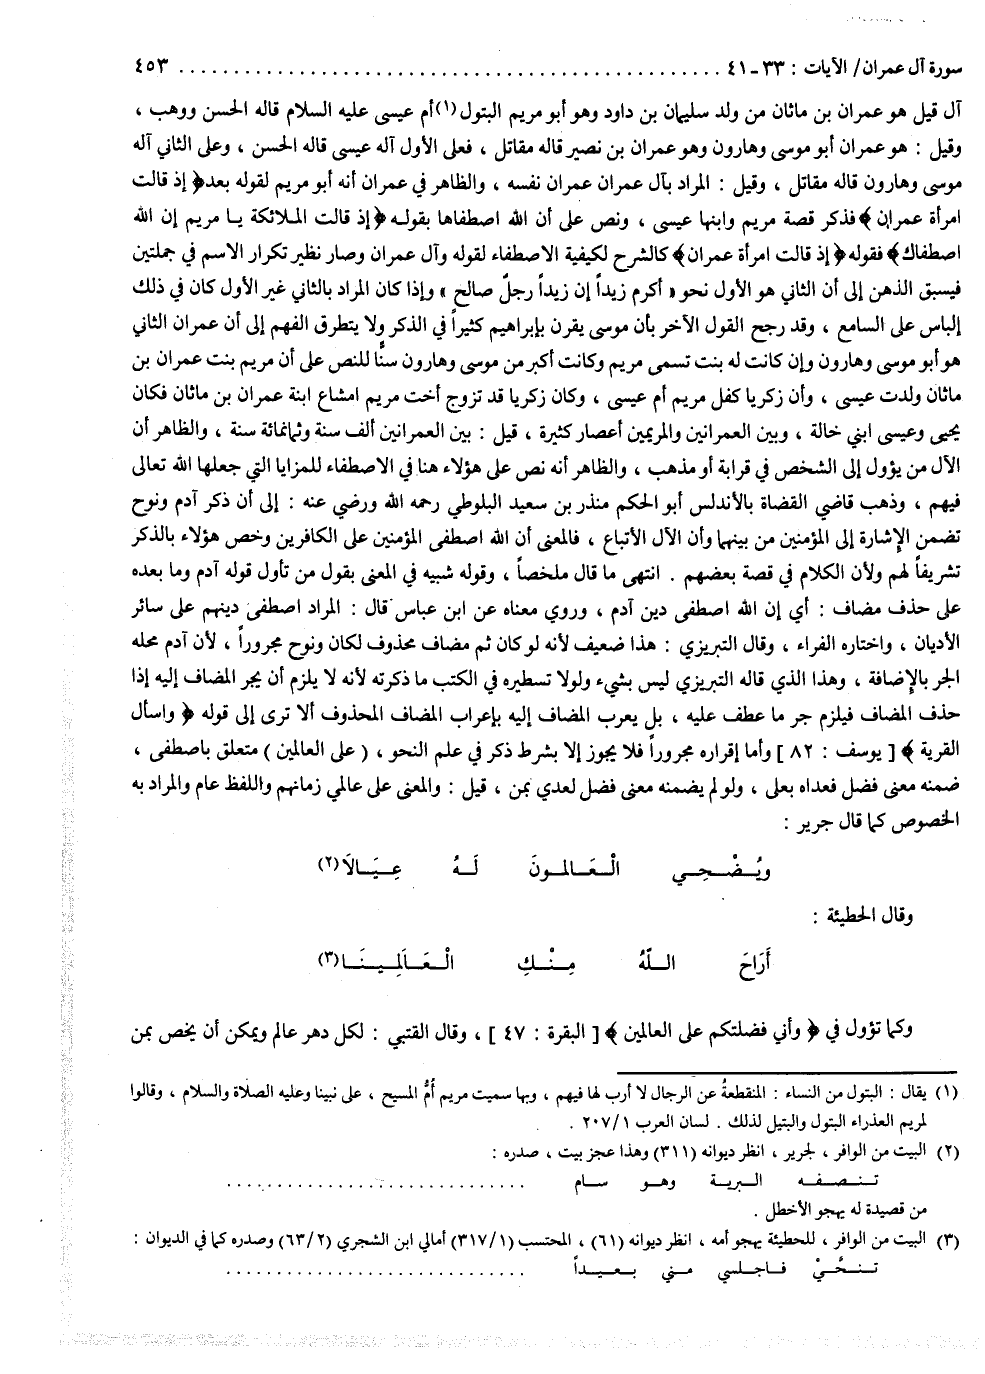 سورة آل عمران/ الآيات : ٣٣ - ٤١ ................................................ ٤٥٣
آل قيل هو عمران بن ماثان من ولد سليمان بن داود وهو أبو مريم البتول(١)أم عيسى عليه السلام قاله الحسن ووهب ،
وقيل : هو عمران أبو موسى وهارون وهو عمران بن نصير قاله مقاتل ، فعلى الأول آله عيسى قاله الحسن ، وعلى الثاني آله
موسى وهارون قاله مقاتل ، وقيل : المراد بآل عمران عمران نفسه ، والظاهر في عمران أنه أبو مريم لقوله بعد﴿ إذ قالت
امرأة عمران ﴾فذكر قصة مريم وابنها عيسى ، ونص على أن الله اصطفاها بقوله ﴿إذ قالت الملائكة يا مريم إن الله
اصطفاك﴾ فقوله﴿ إذ قالت امرأة عمران﴾ كالشرح لكيفية الاصطفاء لقوله وآل عمران وصار نظير تكرار الاسم في جملتين
فيسبق الذهن إلى أن الثاني هو الأول نحو « أكرم زيداً إن زيداً رجلٌ صالح » وإذا كان المراد بالثاني غير الأول كان في ذلك
إلباس على السامع ، وقد رجح القول الآخر بأن موسى يقرن بإبراهيم كثيراً في الذكر ولا يتطرق الفهم إلى أن عمران الثاني
هو أبو موسى وهارون وإن كانت له بنت تسمى مريم وكانت أكبر من موسى وهارون سنًّا للنص على أن مريم بنت عمران بن
ماثان ولدت عيسى ، وأن زكريا كفل مريم أم عيسى ، وكان زكريا قد تزوج أخت مريم امشاع ابنة عمران بن ماثان فكان
يحيى وعيسى ابني خالة ، وبين العمرانين والمريمين أعصار كثيرة ، قيل : بين العمرانين ألف سنة وثمانمائة سنة ، والظاهر أن
الآل من يؤول إلى الشخص في قرابة أو مذهب ، والظاهر أنه نص على هؤلاء هنا في الاصطفاء للمزايا التي جعلها الله تعالى
فيهم ، وذهب قاضي القضاة بالأندلس أبو الحكم منذر بن سعيد البلوطي رحمه الله ورضي عنه : إلى أن ذكر آدم ونوح
تضمن الإشارة إلى المؤمنين من بينهما وأن الآل الأتباع ، فالمعنى أن الله اصطفى المؤمنين على الكافرين وخص هؤلاء بالذكر
تشريفاً لهم ولأن الكلام في قصة بعضهم . انتهى ما قال ملخصاً ، وقوله شبيه في المعنى بقول من تأول قوله آدم وما بعده
على حذف مضاف : أي إن الله اصطفى دين آدم ، وروي معناه عن ابن عباس قال : المراد اصطفى دينهم على سائر
الأديان ، واختاره الفراء ، وقال التبريزي : هذا ضعيف لأنه لو كان ثم مضاف محذوف لكان ونوح مجروراً ، لأن آدم محله
الجر بالإضافة ، وهذا الذي قاله التبريزي ليس بشيء ولولا تسطيره في الكتب ما ذكرته لأنه لا يلزم أن يجر المضاف إليه إذا
حذف المضاف فيلزم جر ما عطف عليه ، بل يعرب المضاف إليه بإعراب المضاف المحذوف ألا ترى إلى قوله ﴿ واسأل
القرية ﴾ [ يوسف : ٨٢ ] وأما إقراره مجروراً فلا يجوز إلا بشرط ذكر في علم النحو ، ( على العالمين ) متعلق باصطفى ،
ضمنه معنى فضل فعداه بعلى ، ولو لم يضمنه معنى فضل لعدي بمن ، قيل : والمعنى على عالمي زمانهم واللفظ عام والمراد به
الخصوص كما قال جرير :
ويُضْحِي الْعَالمونَ لَهُ عِيَالَا(٢)
وقال الحطيئة :
أَرَاحَ اللَّهُ مِنْكِ الْعَالَمِينَا(٣)
وكما تؤول في ﴿ وأني فضلتكم على العالمين ﴾ [ البقرة : ٤٧ ] ، وقال القتبي : لكل دهر عالم ويمكن أن يخص بمن
(١) يقال : البتول من النساء : المنقطعةُ عن الرجال لا أرب لها فيهم ، وبها سميت مريم أُمُّ المسيح ، على نبينا وعليه الصلاة والسلام ، وقالوا
لمريم العذراء البتول والبتيل لذلك . لسان العرب ٢٠٧/١ .
(٢) البيت من الوافر ، لجرير ، انظر ديوانه (٣١١) وهذا عجز بيت ، صدره :
تنصفه البرية وهو سام ............................
من قصيدة له يهجو الأخطل .
(٣) البيت من الوافر ، للحطيئة يهجو أمه ، انظر ديوانه (٦١) ، المحتسب (٣١٧/١) أمالي ابن الشجري (٦٣/٢) وصدره كما في الديوان :
تنحَّيْ فاجلسي مني بعيداً ............................